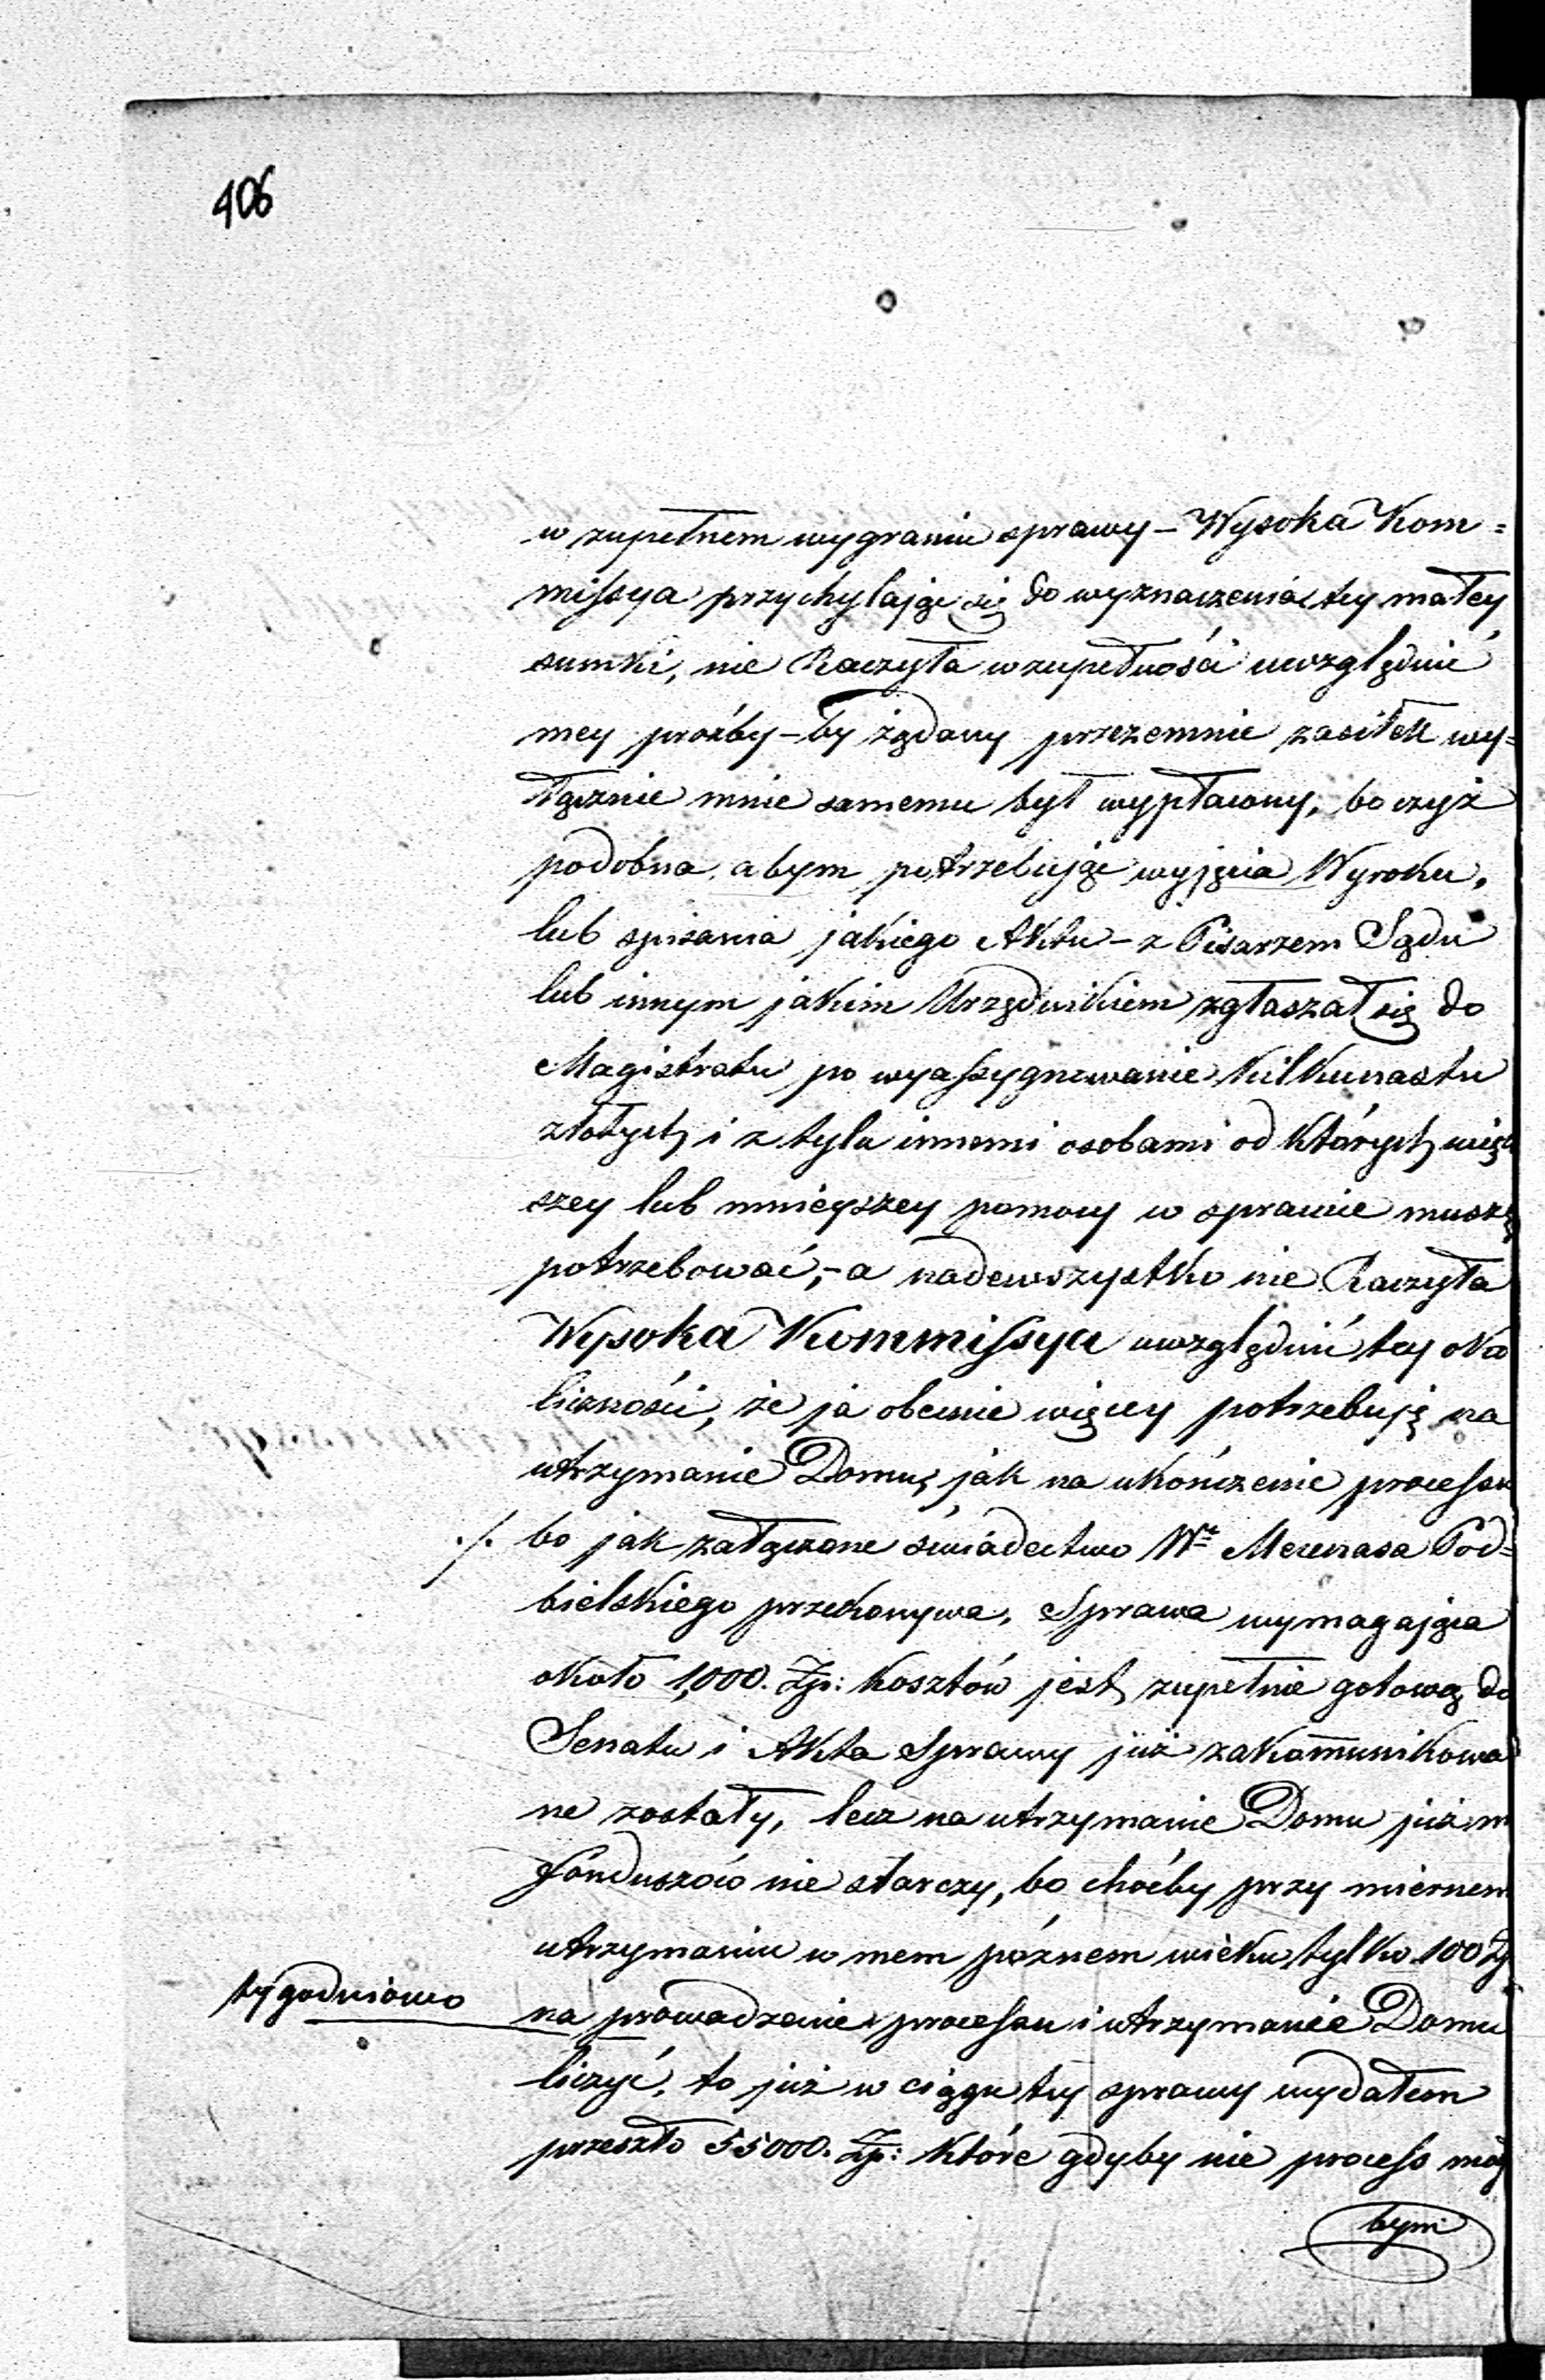 406
w zupełnem wygraniu sprawy – Wysoka Kom=
missya przychylając się do wyznaczenia tey małey
sumki, nie Raczyła w zupełności uwzględnić
mey prozby – by żądany przezemnie zasiłek wy=
łącznie mnie samemu był wypłacony, bo czyż
podobna, abym potrzebując wyjęcia Wyroku,
lub spisania jakiego Aktu – z Pisarzem Sądu
lub innym jakim Urzędnikiem zgłaszał się do
Magistratu po wyassygnowanie kilkunastu
złotych i z tylu innemi osobami od których więk
szey lub mnieyszey pomocy w sprawie muszę
potrzebować, – a nadewszystko nie Raczyła
Wysoka Kommissya uwzględnić tey oko
liczności, że ja obecnie więcey potrzebuję na
utrzymanie Domu, jak na ukończenie processu
./. bo jak załączone świadectwo Wo Mecenasa Pod=
bielskiego przekonywa, Sprawa wymagająca
około 1,000. Zp: kosztów jest zupełnie gotową do
Senatu i Akta Sprawy już zakom̄unikowa
ne zostały, lecz na utrzymanie Domu już m
fonduszów nie starczy, bo choćby przy miernem
utrzymaniu w mem póznem wieku tylko 100 Zp
tygodniowo na prowadzenie processu i utrzymanie Domu
liczyć, to już w ciągu tey sprawy wydałem
przeszło 55000. Zp: które gdyby nie process mógł
bym